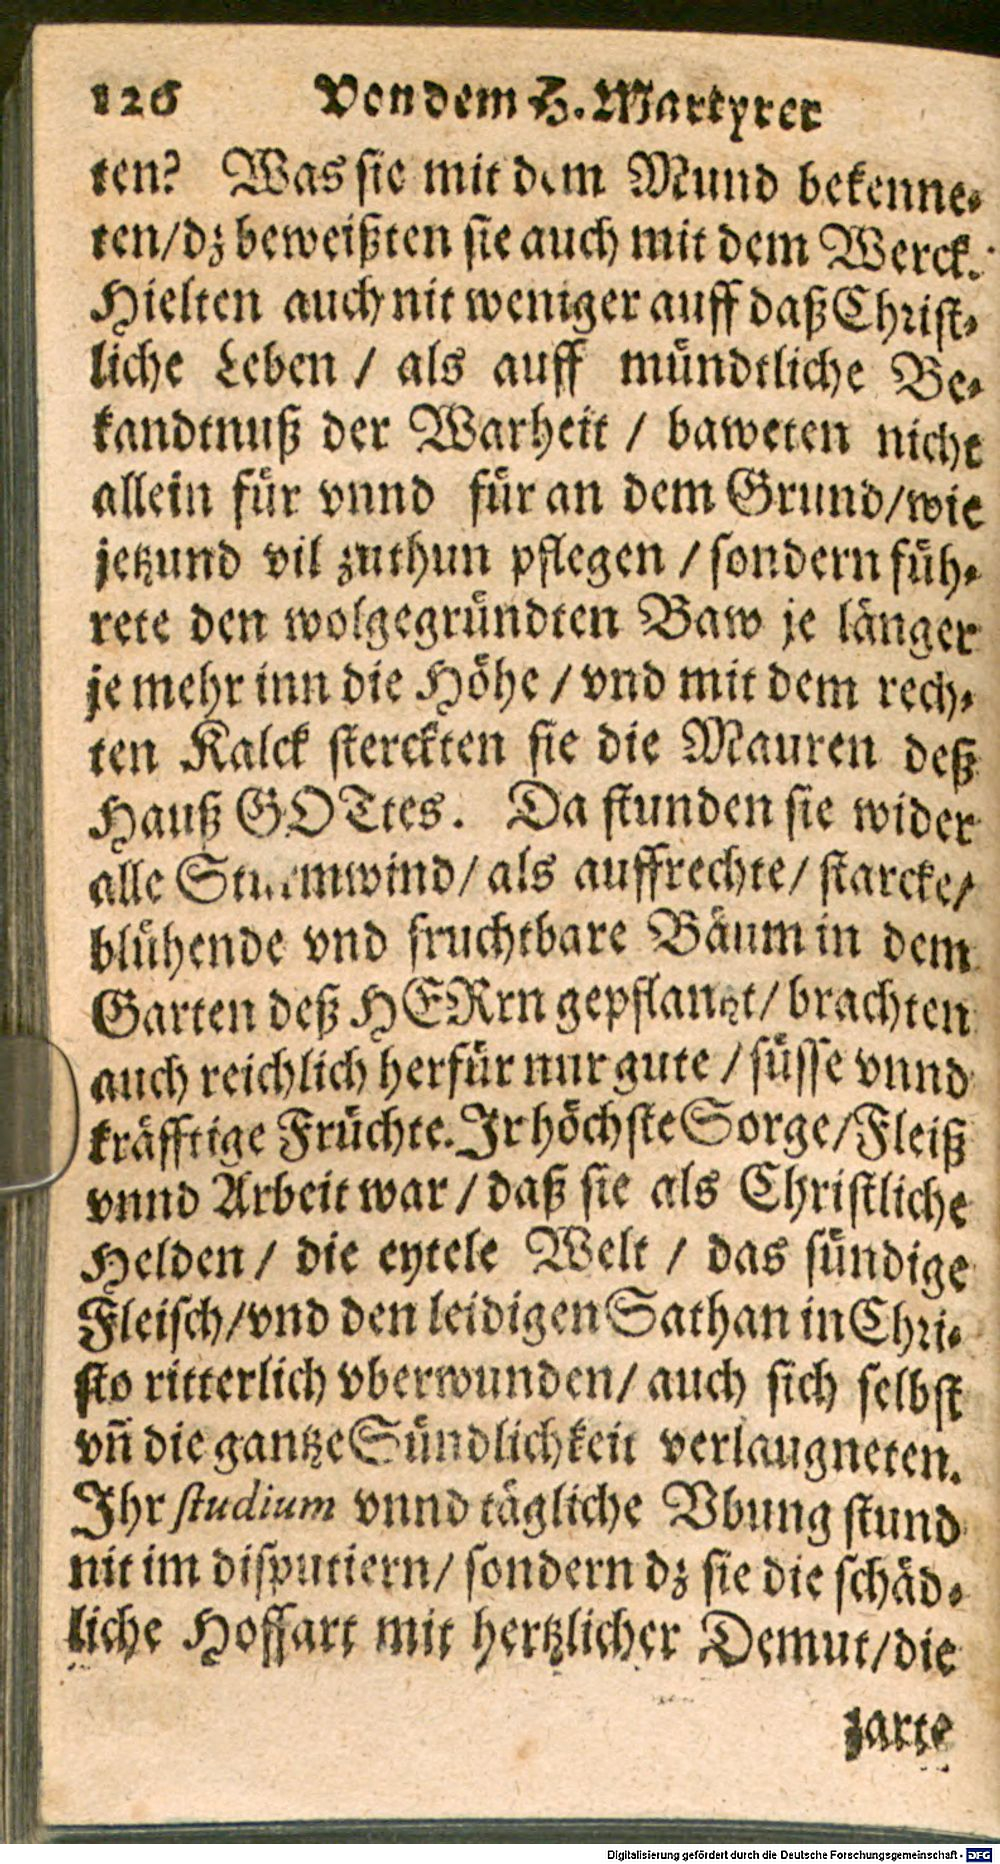 126 Von dem H. Martyrer
ten? Was sie mit dem Mund bekenne-
ten/dz beweißten sie auch mit dem Werck.
Hielten auch nit weniger auff daß Christ-
liche Leben / als auff mündtliche Be-
kandtnuß der Warheit / baweten nicht
allein für vnnd für an dem Grund/wie
jetzund vil zuthun pflegen / sondern füh-
rete den wolgegründten Baw je länger
je mehr inn die Höhe / vnd mit dem rech-
ten Kalck sterckten sie die Mauren deß
Hauß GOTtes. Da stunden sie wider
alle Sturmwind/ als auffrechte/ starcke/
blühende vnd fruchtbare Bäum in dem
Garten deß HERrn gepflantzt/ brachten
auch reichlich herfür nur gute / süsse vnnd
kräfftige Früchte. Ir höchste Sorge/Fleiß
vnnd Arbeit war / daß sie als Christliche
Helden / die eytele Welt / das sündige
Fleisch/vnd den leidigen Sathan in Chri-
sto ritterlich vberwunden/ auch sich selbst
vñ die gantze Sündlichkeit verlaugneten.
Ihr studium vnnd tägliche Vbung stund
nit im disputiern/ sondern dz sie die schäd-
liche Hoffart mit hertzlicher Demut/die
zarte
Digitalisierung gefördert durch die Deutsche Forschungsgemeinschaft - DFG